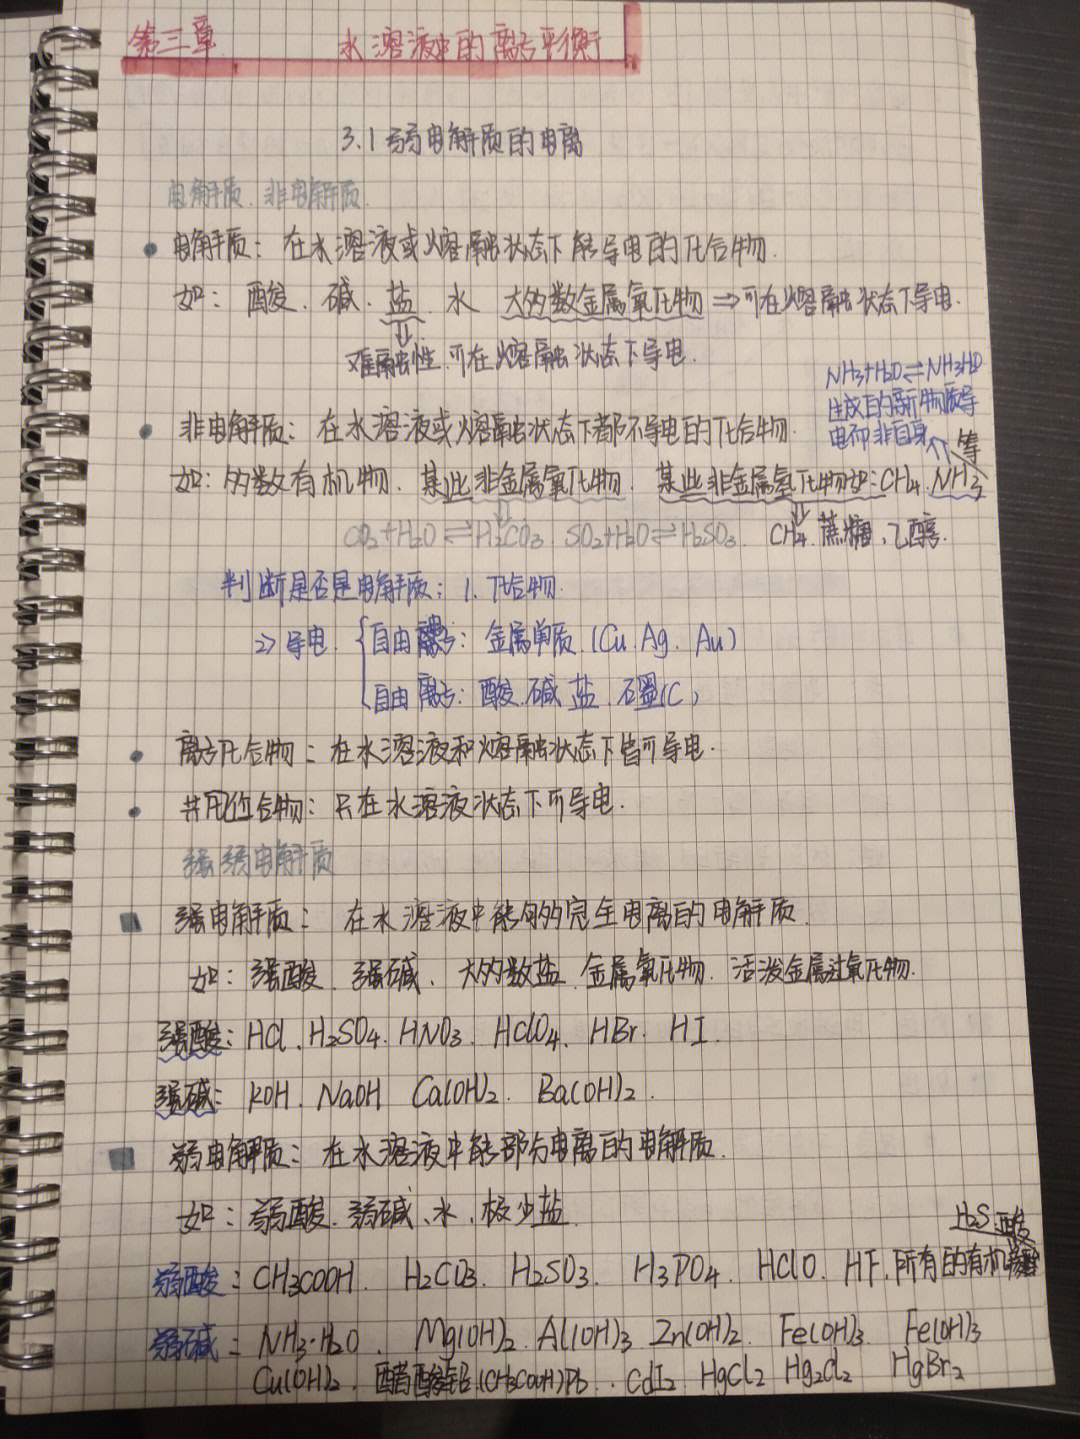 第三章 水溶液中的离子平衡
3.1 弱电解质的电离
电解质、非电解质
电解质：在水溶液或熔融状态下能导电的化合物.
如：酸、碱、盐、水 大多数金属氧化物⇒可在熔融状态下导电.
⇓
难融性 可在熔融状态下导电.
NH3+H2O⇌NH3H2O
生成的新物质导
电而非自身
非电解质：在水溶液或熔融状态下都不导电的化合物.
等
如：多数有机物、某此非金属氧化物、某此非金属氢化物如:CH4.NH3
CO2+H2O⇌H2CO3. SO2+H2O⇌H2SO3. CH4.蔗糖、乙醇.
判断是否是电解质：1. 化合物.
2) 导电.
自由离子：金属单质.(Cu.Ag.Au)
自由离子：酸.碱.盐.石墨(C)
离子化合物：在水溶液和熔融状态下皆可导电.
共用价合物：只在水溶液状态下可导电.
强弱电解质
强电解质：在水溶液中能够完全电离的电解质.
如：强酸、强碱、大多数盐、金属氧化物、活泼金属过氧化物.
强酸：HCl、H2SO4、HNO3、HClO4、HBr、HI.
强碱：KOH、NaOH Ca(OH)2、Ba(OH)2.
弱电解质：在水溶液中能部分电离的电解质.
如：弱酸、弱碱、水、极少盐.
H2S 酸
弱酸：CH3COOH. H2CO3. H2SO3. H3PO4. HClO. HF.所有的有机
弱碱：NH3·H2O. Mg(OH)2. Al(OH)3 Zn(OH)2. Fe(OH)3. Fe(OH)3
Cu(OH)2. 醋酸铅(CH3COOH)Pb. CdI2. HgCl2 Hg2Cl2 HgBr2